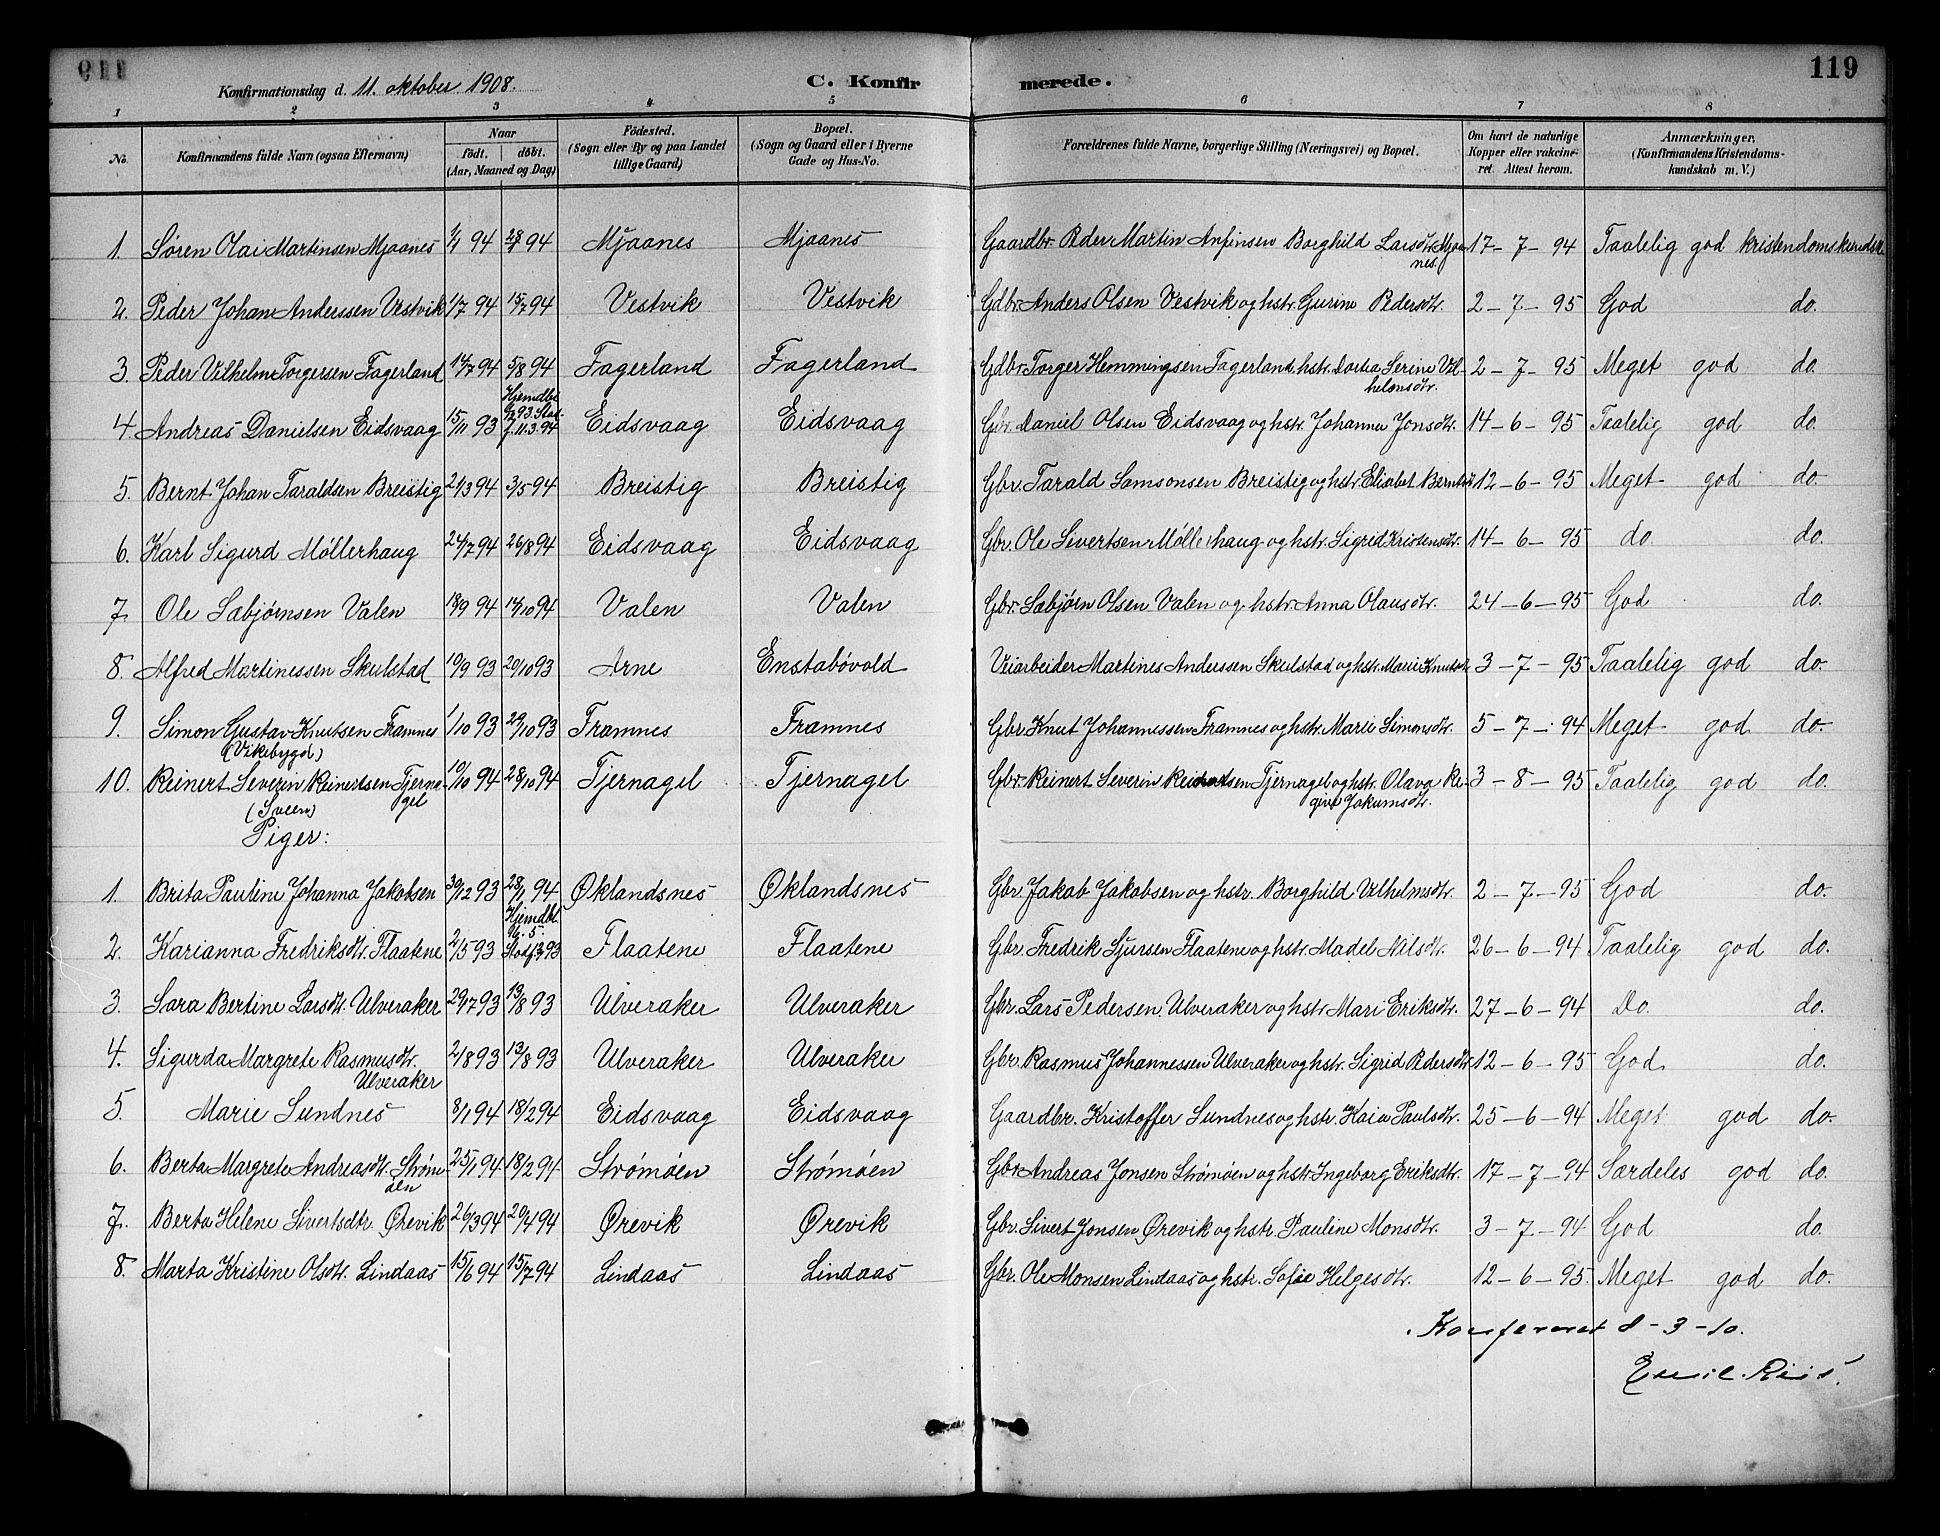 119
Konfirmationsdag d. 11. oktober 1908. C. Konfirmerede.
1 2 3 4 5 6 7 8
No. Konfirmandens fulde Navn (ogsaa Efternavn) Naar födt. döbt. (Aar, Maaned og Dag) Födested. (Sogn eller By og paa Landet tillige Gaard) Bopæl. (Sogn og Gaard eller i Byerne Gade og Hus-No. Forældrenes fulde Navne, borgerlige Stilling (Næringsvei) og Bopæl. Om havt de naturlige Kopper eller vakcineret. Attest herom. Anmærkninger, (Konfirmandens Kristendomskundskab m. V.)
1. Søren Olai Martinsen Mjaanes 94 94 Mjaanes Mjaanes Gaardbr. Peder Martin Anfinsen Borghild Larsdtr. Mjaanes. 17-7-94 Taalelig god kristendomskundsk.
2. Peder Johan Anderssen Vestvik 1/7 94 15/7 94 Vestvik Vestvik Gdbr. Anders Olsen Vestvik og hstr. Gurine Pedersdtr. 2-7-95 God do.
3. Peder Vilhelm Torgersen Fagerland 14/7 94 5/8 94 Fagerland Fagerland Gdbr. Torger Hemmingsen Fagerland hstr. Dortea Serine Vilhelmsdtr. 2-7-95 Meget god do.
4. Andreas Danielsen Eidsvaag 15/11 93 Hjemdbt. 93. Stadf. 11.3.94 Eidsvaag Eidsvaag Gbr. Daniel Olsen Eidsvaag og hstr. Johanna Jonsdtr. 14-6-95 Taalelig god do.
5. Bernt Johan Taraldsen Breistig 21/3 94 3/5 94 Breistig Breistig Gbr. Tarald Samsonsen Breistig og hstr. Elisabet Berntsdtr 12-6-95 Meget god do.
6. Karl Sigurd Möllerhaug 24/7 94 26/8 94 Eidsvaag Eidsvaag Gbr. Ole Sivertsen Möllerhaug og hstr. Sigrid Kristensdtr. 14-6-95 do. do.
7. Ole Sæbjørnsen Valen 18/9 94 14/10 94 Valen Valen Gbr. Sæbjörn Olsen Valen og hstr. Anna Olausdtr. 24-6-95 God do.
8. Alfred Martinessen Skulstad 10/9 93 20/10 93 Arne Enstabövold Veiarbeider Martines Anderssen Skulstad og hstr. Marie Knutsdtr 3-7-95 Taalelig god do.
9. Simon Gustav Knutsen Framnes (Vikebygd) 1/10 93 29/10 93 Framnes Framnes Gbr. Knut Johannessen Framnes og hstr. Marie Simonsdtr. 5-7-94 Meget god do.
10. Reinert Severin Reinertsen Tjernagel (Sveen) 10/10 94 28/10 94 Tjernagel Tjernagel Gbr. Reinert Severin Reinertsen Tjernagel og hstr. Olava Regine Jakumsdtr. 3-8-95 Taalelig god do.
Piger:
1. Brita Pauline Johanna Jakobsen 30/12 93 28/1 94 Öklandsnes Öklandsnes Gbr. Jakob Jakobsen og hstr. Borghild Vilhelmsdtr. 2-7-95 God do.
2. Karianna Fredriksdtr. Flaatene 2/5 93 Hjemdbt. Flaatene Flaatene Gbr. Fredrik Sjursen Flaatene og hstr. Madel Nilsdtr. 26-6-94 Taalelig god do.
3. Sara Bertine Larsdtr. Ulveraker 29/7 93 13/8 93 Ulveraker Ulveraker Gbr. Lars Pedersen Ulveraker og hstr. Mari Eriksdtr. 27-6-94 Do. do.
4. Sigurda Margrete Rasmusdtr. Ulveraker 2/8 93 13/8 93 Ulveraker Ulveraker Gbr. Rasmus Johannessen Ulveraker og hstr. Sigrid Pedersdtr 12-6-95 God do.
5. Marie Sundnes 8/1 94 18/2 94 Eidsvaag Eidsvaag Gaardbr. Kristoffer Sundnes og hstr. Kaia Paulsdtr. 25-6-94 Meget god do.
6. Berta Margrete Andreasdtr. Strømøen 25/1 94 18/2 94 Strömöen Strömöen Gbr. Andreas Jonsen Strömöen og hstr. Ingeborg Eriksdtr. 17-7-94 Særdeles god do.
7. Berta Helene Sivertsdtr. Ørevik 26/3 94 29/4 94 Ørevik Ørevik Gbr. Sivert Jonsen Ørevik og hstr. Pauline Monsdtr. 3-7-94 God do.
8. Marta Kristine Olsdtr. Lindaas 15/6 94 15/7 94 Lindaas Lindaas Gbr. Ole Monsen Lindaas og hstr. Sofie Helgesdtr. 12-6-95 Meget god do.
Konfereret 8-3-10.
Emil Riis.